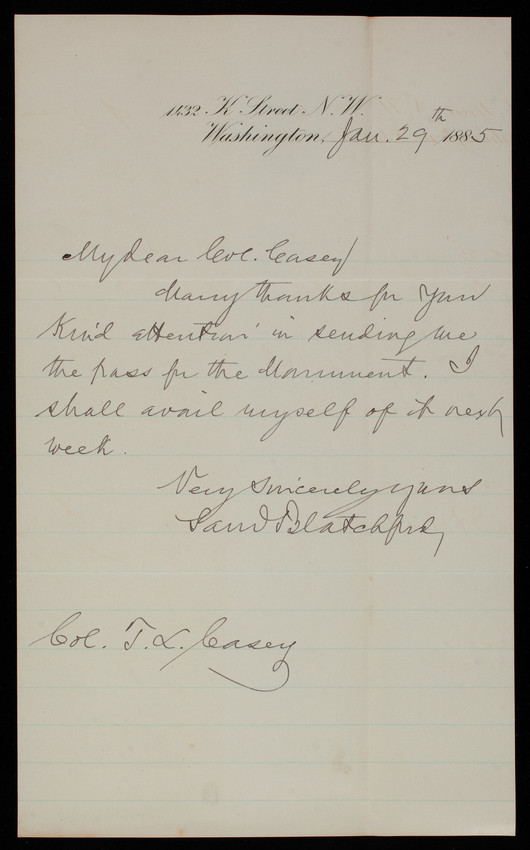 1432 K Street N.W.
Washington, Jan. 29th 1885
My dear Col. Casey
Many thanks for your
kind attention in sending me
the pass for the Monument. I
shall avail myself of it next
week.
Very sincerely yours
Saml Blatchford,
Col. T. L. Casey